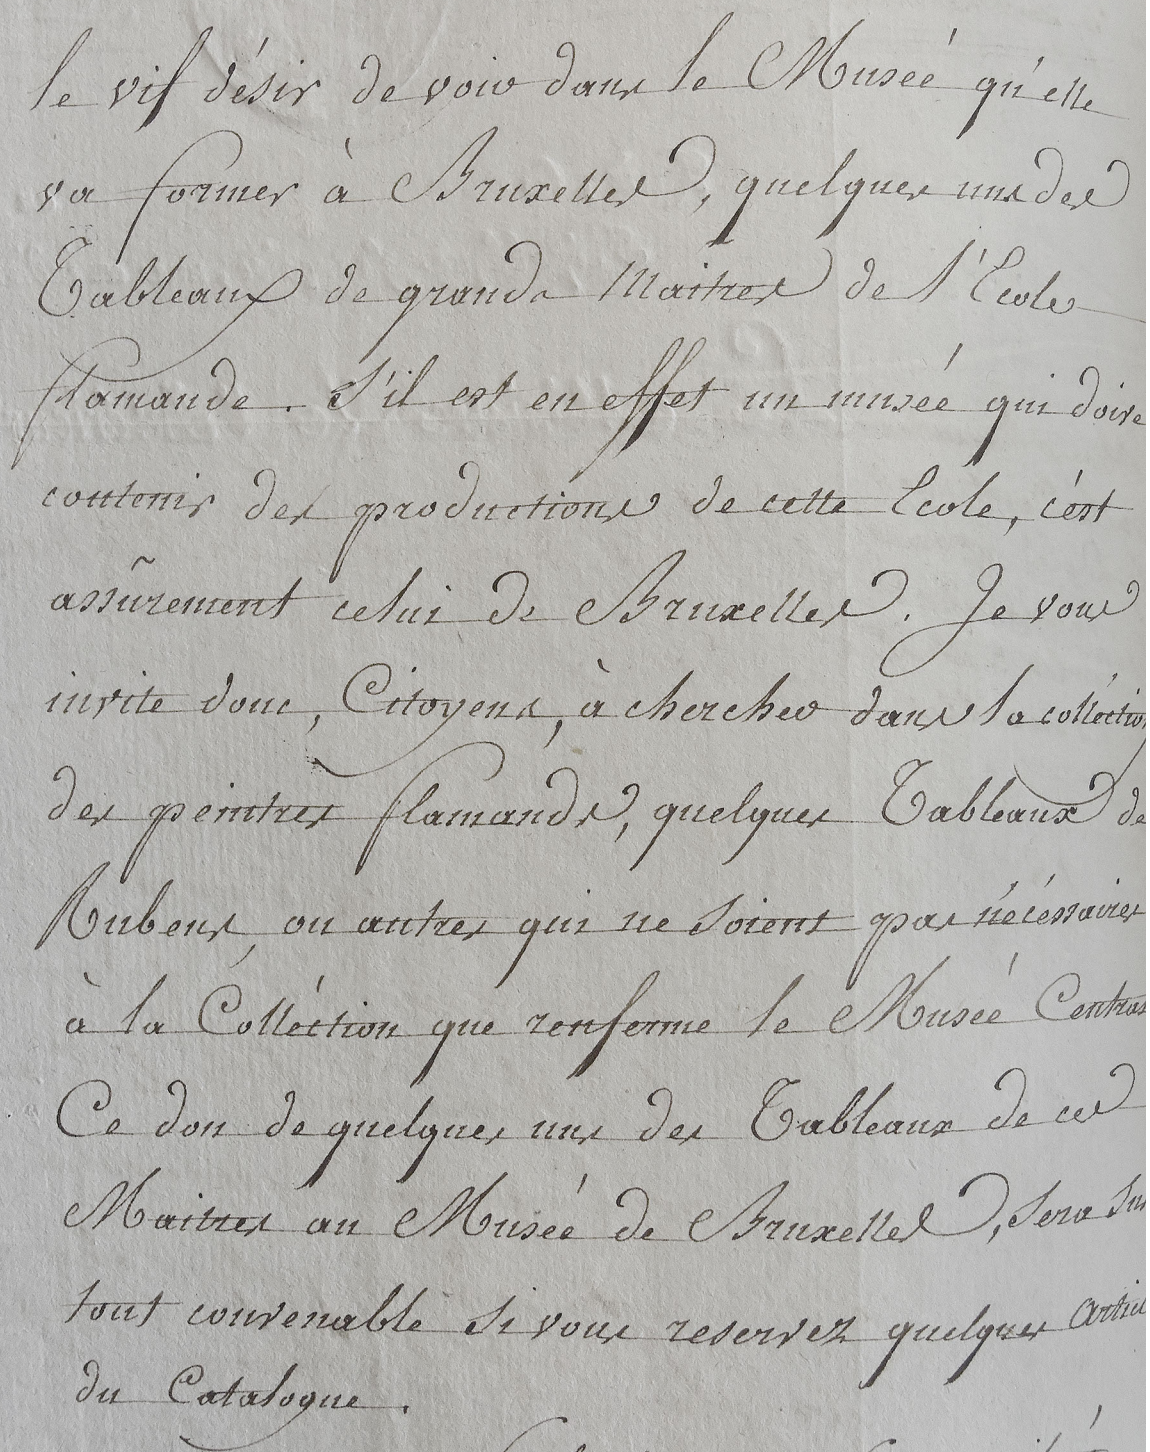 le vif désir de voir dans le Musée qu'elle
va former à Bruxelles, quelques uns des
Tableaux de grands Maitres de l'Ecole
flamande. S'il est en effet un musée qui doive
contenir des productions de cette Ecole, c'est
assûrement celui de Bruxelles. Je vous
invite donc, Citoyens, à chercher dans la collection
des peintres flamands, quelques Tableaux de
Rubens, ou autres qui ne soient pas nécéssaires
à la Colléction que renferme le Musée Central
Ce don de quelques uns des Tableaux de ces
Maitres au Musée de Bruxelles, sera sur
tout convenable si vous reservez quelques
du Catalogue.